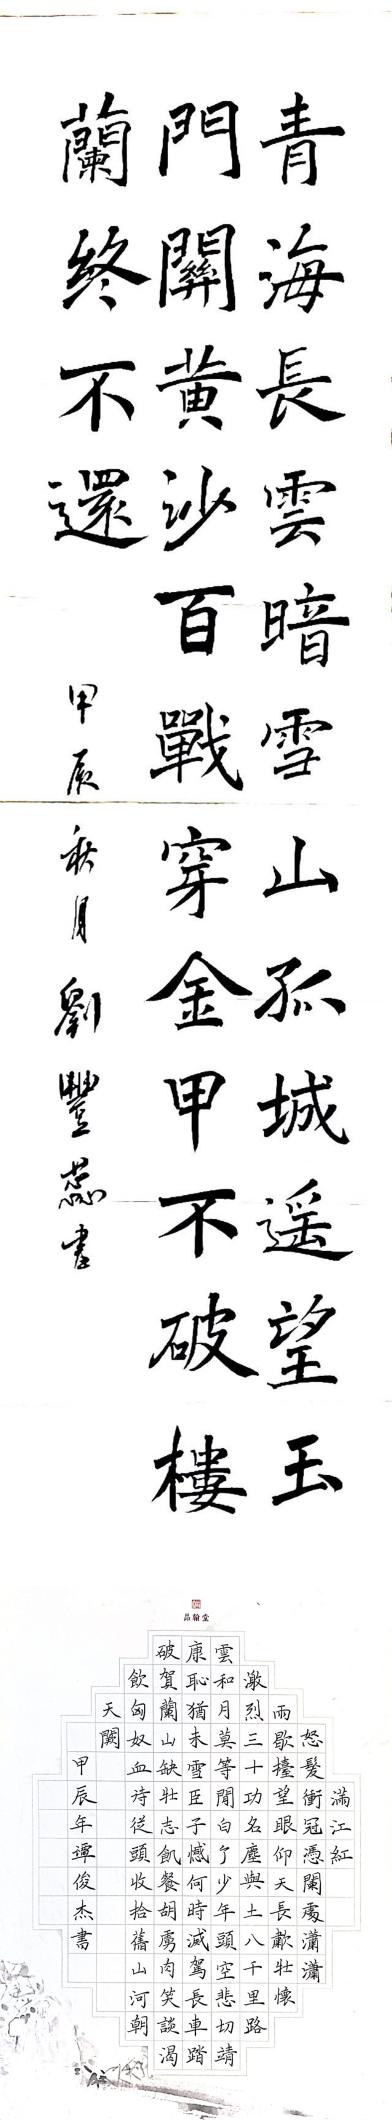 青海長雲暗雪山孤城遥望玉
門關黄沙百戰穿金甲不破樓
蘭終不還
甲辰秋月劉豐蕊書
滿江紅
怒髮衝冠憑闌處瀟瀟
雨歇擡望眼仰天長歗壯懷
激烈三十功名塵與土八千里路
雲和月莫等閒白了少年頭空悲切靖
康恥猶未雪臣子憾何時滅駕長車踏
破賀蘭山缺壯志飢餐胡虜肉笑談渴
飲匈奴血待從頭收拾舊山河朝
天闕
甲辰年譚俊杰書